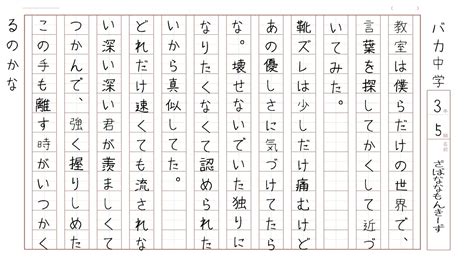 バカ中学
3年
5組
名前
ざ・ばななもんきーず
教室は僕らだけの世界で、
言葉を探してかくして近づ
いてみた。
靴ズレは少しだけ痛むけど
あの優しさに気づけてたら
な。壊せないでいた独りに
なりたくなくて認められた
いから真似してた。
どれだけ速くても流されな
い深い深い君が羨ましくて
つかんで、強く握りしめた
この手も離す時がいつかく
るのかな